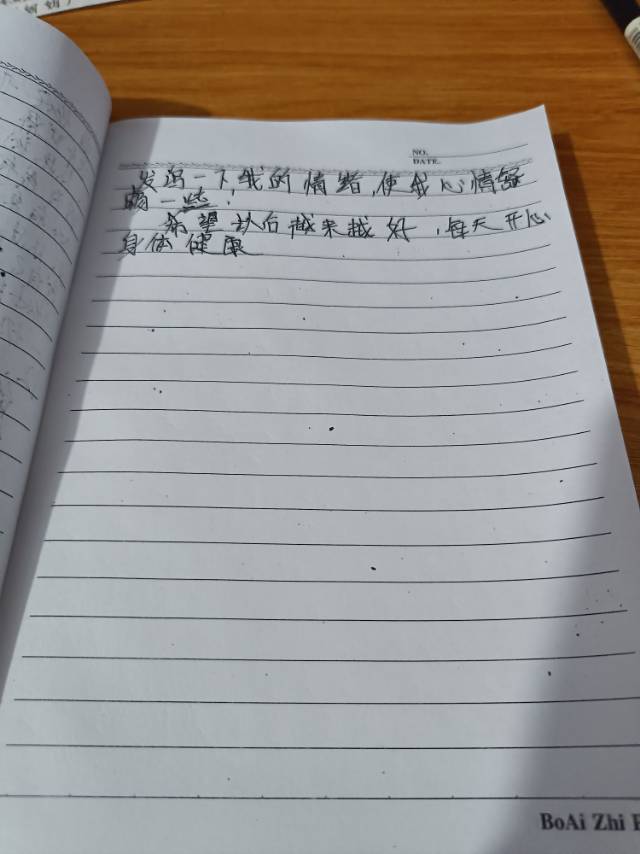 NO.
DATE.
发泻一下,我的情绪,使我心情舒
畅一些.
希望以后越来越好,每天开心
身体健康
BoAi Zhi